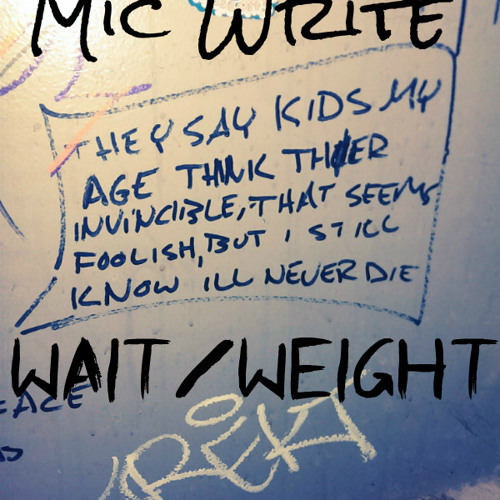 MIC WRITE
THEY SAY KIDS MY
AGE THINK THIER
INVINCIBLE, THAT SEEMS
FOOLISH, BUT I STILL
KNOW ILL NEVER DIE
WAIT/WEIGHT